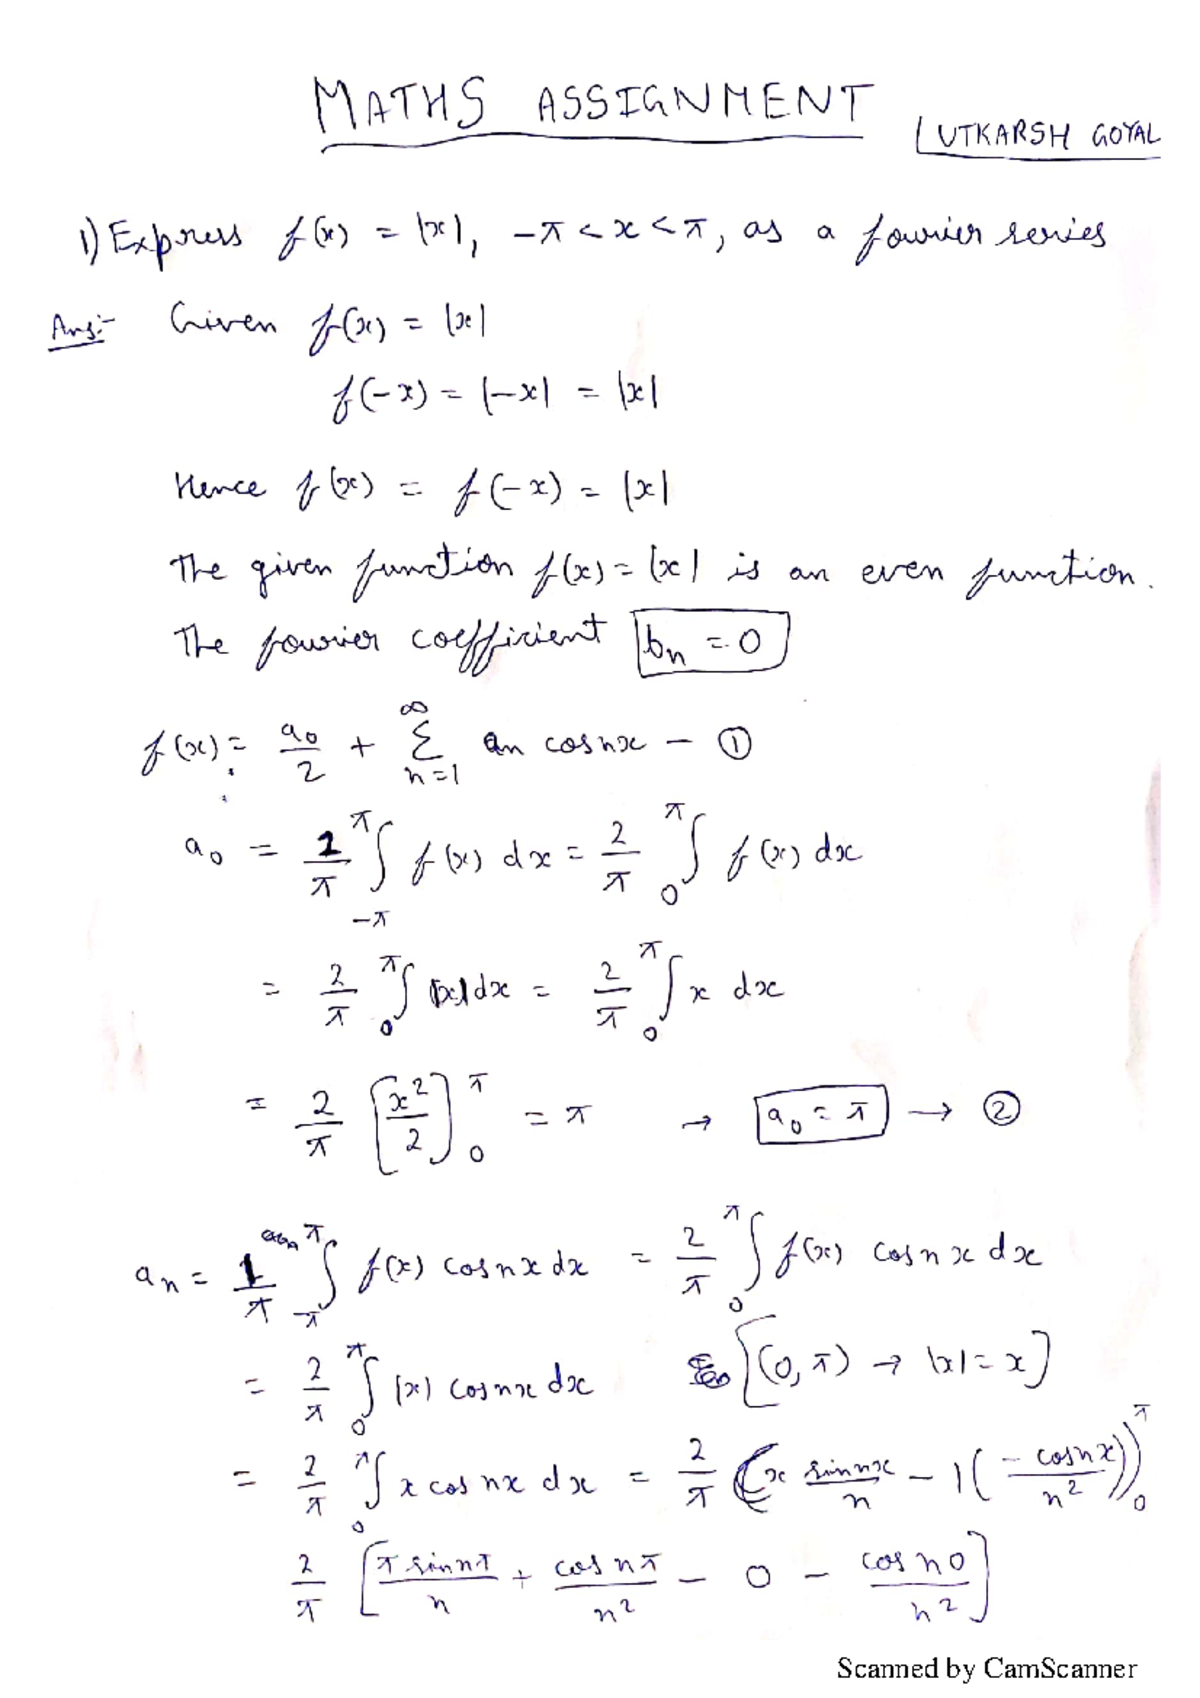 MATHS ASSIGNMENT
UTKARSH GOYAL
1) Express f(x) = |x|, -π < x < π, as a fourier series
Ans:- Given f(x) = |x|
f(-x) = |-x| = |x|
Hence f(x) = f(-x) = |x|
The given function f(x) = |x| is an even function.
The fourier coefficient bn = 0
f(x) = a0/2 + Σ_{n=1}^{∞} an cosnx - ①
a0 = 1/π ∫_{-π}^{π} f(x) dx = 2/π ∫_{0}^{π} f(x) dx
= 2/π ∫_{0}^{π} |x| dx = 2/π ∫_{0}^{π} x dx
= 2/π [x²/2]_{0}^{π} = π → a0 = π → ②
an = 1/π ∫_{-π}^{π} f(x) cosnx dx = 2/π ∫_{0}^{π} f(x) cosnx dx
= 2/π ∫_{0}^{π} |x| cosnx dx [(0, π) → |x| = x]
= 2/π ∫_{0}^{π} x cos nx dx = 2/π (x sinnx/n - 1(-cosnx/n²))_{0}^{π}
2/π [π sinnπ/n + cos nπ/n² - 0 - cos n0/n²]
Scanned by CamScanner